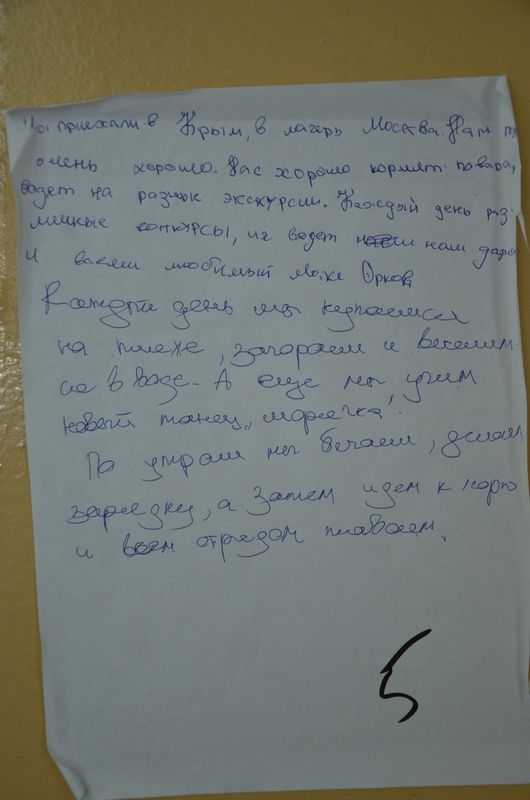 Мы приехали в Крым, в лагерь Москва. Нам тут
очень хорошо. Нас хорошо кормят повара,
водят на разные экскурсии. Каждый день раз
личные конкурсы, их ведет нам
и всеми любимый
Каждый день мы купаемся
на пляже, загораем и веселим-
ся в воде. А еще мы учим
новый танец „морячка".
По утрам мы бегаем, делаем
зарядку, а затем идем к морю
и всем отрядом плаваем.
5